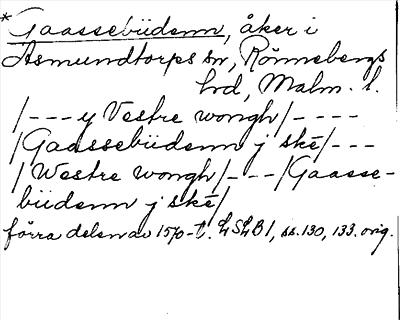 * Gaassebüdenn, åker i
Asmundtorps sn, Rönnebergs
hrd, Malm. l.
/--- y Vestre wongh/----
/Gaassebüdenn j ské/---
/Westre wongh/---/Gaasse-
büdenn j ské/
förra delen av 1570-t. LSLB 1, ss. 130, 133. orig.